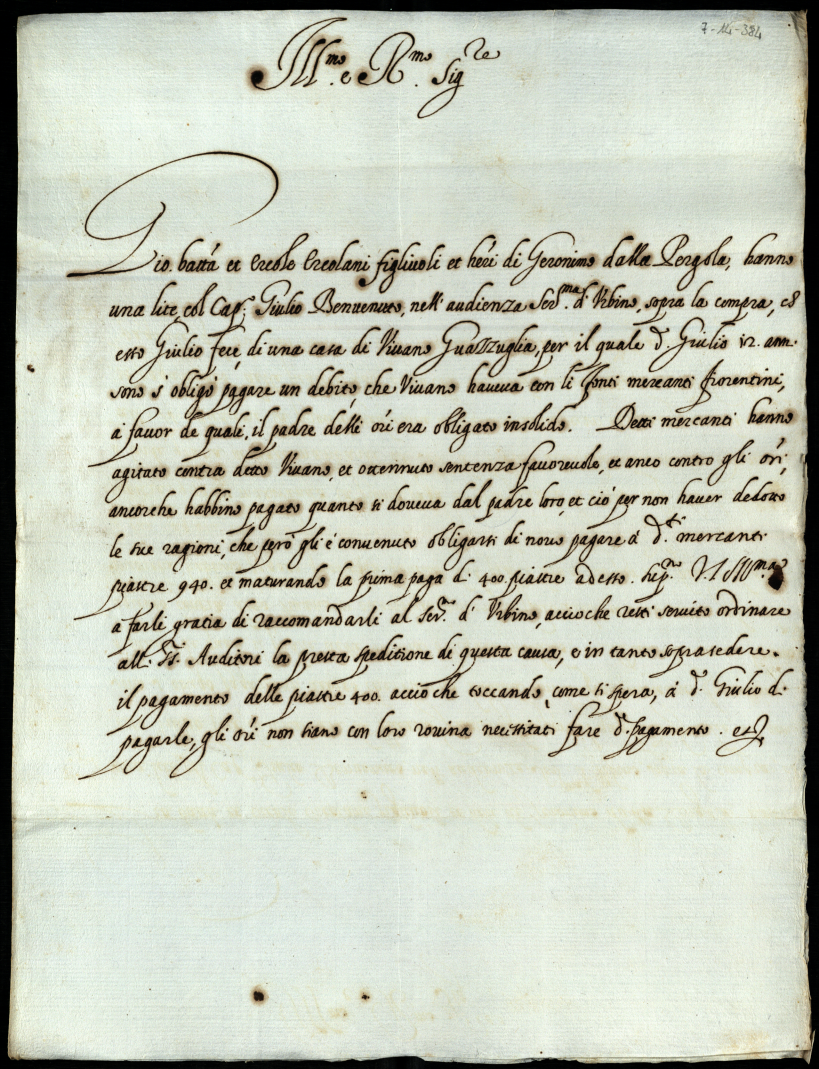 7-14-384
Ill.mo e R.mo Sig.re
Gio. batta et Ercole Ercolani figliuoli et heri di Geronimo dalla Pergola, hanno
una lite, col Cap. Giulio Benvenuto, nell'audienza Ser.ma d'Urbino, sopra la compra, ch
esso Giulio fece, di una casa di Vivano Guazzuglia, per il quale d. Giulio 12. anni
sono s'obligò pagare un debito, che Vivano haveva con li Fonti mercanti fiorentini,
à favor de quali, il padre delli ori era obligato insolido. Detti mercanti hanno
agitato contra detto Vivano, et ottennuto sentenza favorevole, et anco contro gli ori,
ancorche habbino pagato quanto si doveva dal padre loro, et ciò per non haver dedotto
le sue ragioni, che però gli è convenuto obligarsi di novo pagare à d.ti mercanti
piastre 940. et maturando la prima paga di 400. piastre adesso. V. S. Ill.ma
a farli gratia di raccomandarli al Ser.mo d'Urbino, accioche resti servito ordinare
alli SS. Auditori la presta speditione di questa causa, e in tanto soprasedere.
il pagamento delle piastre 400. accioche toccando, come si spera, à d. Giulio di
pagarle, gli ori non siano con loro rovina necessitati fare d. pagamento. et